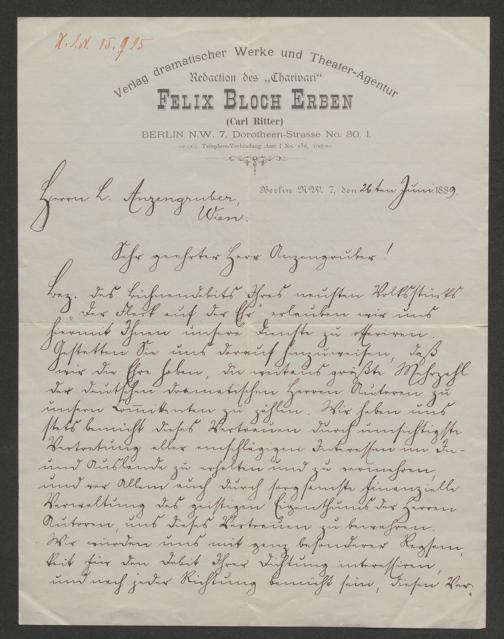 Verlag dramatischer Werke und Theater-Agentur
Redaction des „Charivari“
FELIX BLOCH ERBEN
(Carl Ritter)
BERLIN N.W. 7, Dorotheen-Strasse No. 80, I.
Telephon-Verbindung Amt I No.
Berlin N.W. 7, den 26ten Juni 1889.
Herrn L. Anzengruber,
Wien.
Sehr geehrter Herr Anzengruber!
Bez. des Bühnendebits Ihres neuesten Volksstücks
„Der Fleck auf der Ehr“ erlauben wir uns
hiermit Ihnen unsere Dienste zu offeriren.
Gestatten Sie uns darauf hinzuweisen, daß
wir die Ehre haben, die weitaus größte Mehrzahl
der deutschen dramatischen Herren Autoren zu
unsern Committenten zu zählen. Wir haben uns
stets bemüht dieses Vertrauen durch umsichtigste
Vertretung aller einschlägigen Interessen im In-
und Auslande zu erhalten und zu vermehren,
und vor Allem auch durch sorgsamste finanzielle
Verwaltung des geistigen Eigenthums der Herren
Autoren, uns dieses Vertrauen zu bewahren.
Wir würden uns mit ganz besonderer Regsam-
keit für den Debit Ihrer Dichtung interessiren,
und nach jeder Richtung bemüht sein, diesen Ver-